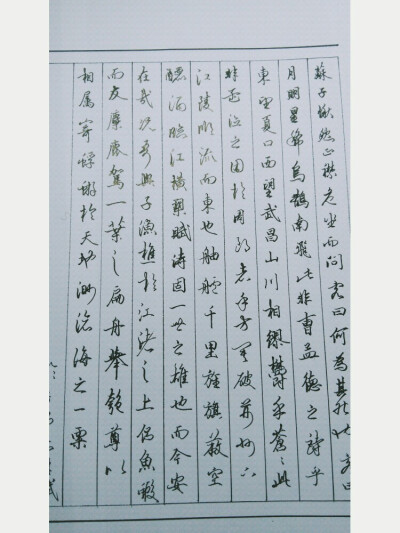 蘇子愀然正襟危坐而問客曰何為其然也客曰
月明星稀烏鵲南飛此非曹孟德之詩乎
東望夏口西望武昌山川相繆鬱乎蒼〻此
非孟德之困於周郎者乎方其破荊州下
江陵順流而東也舳艫千里旌旗蔽空
釃酒臨江橫槊賦詩固一世之雄也而今安
在哉況吾與子漁樵於江渚之上侶魚蝦
而友麋鹿駕一葉之扁舟舉匏尊以
相屬寄蜉蝣於天地渺滄海之一粟